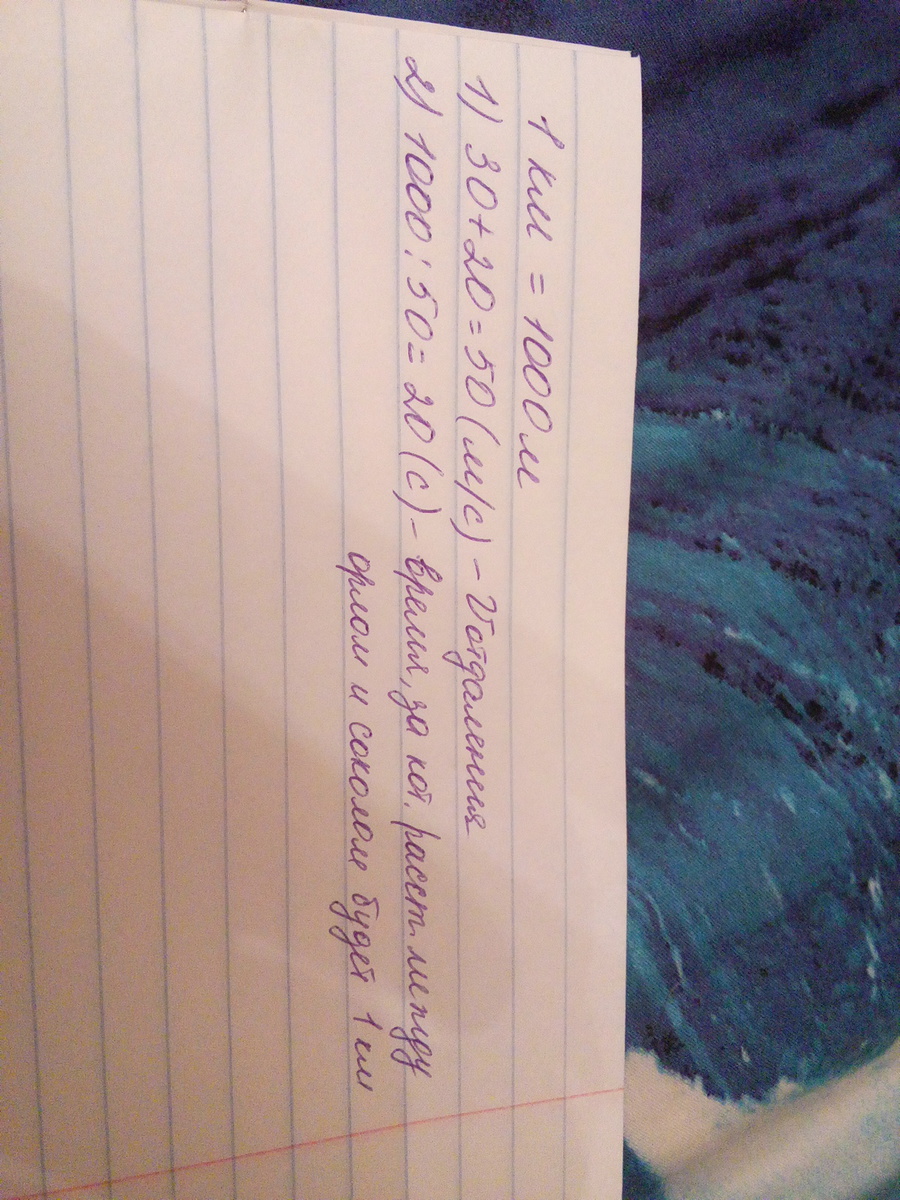 1 км = 1000 м
1) 30+20=50 (м/с) - Vотдаления
2) 1000:50=20 (с) - время, за кот. расст. между
орлом и соколом будет 1 км